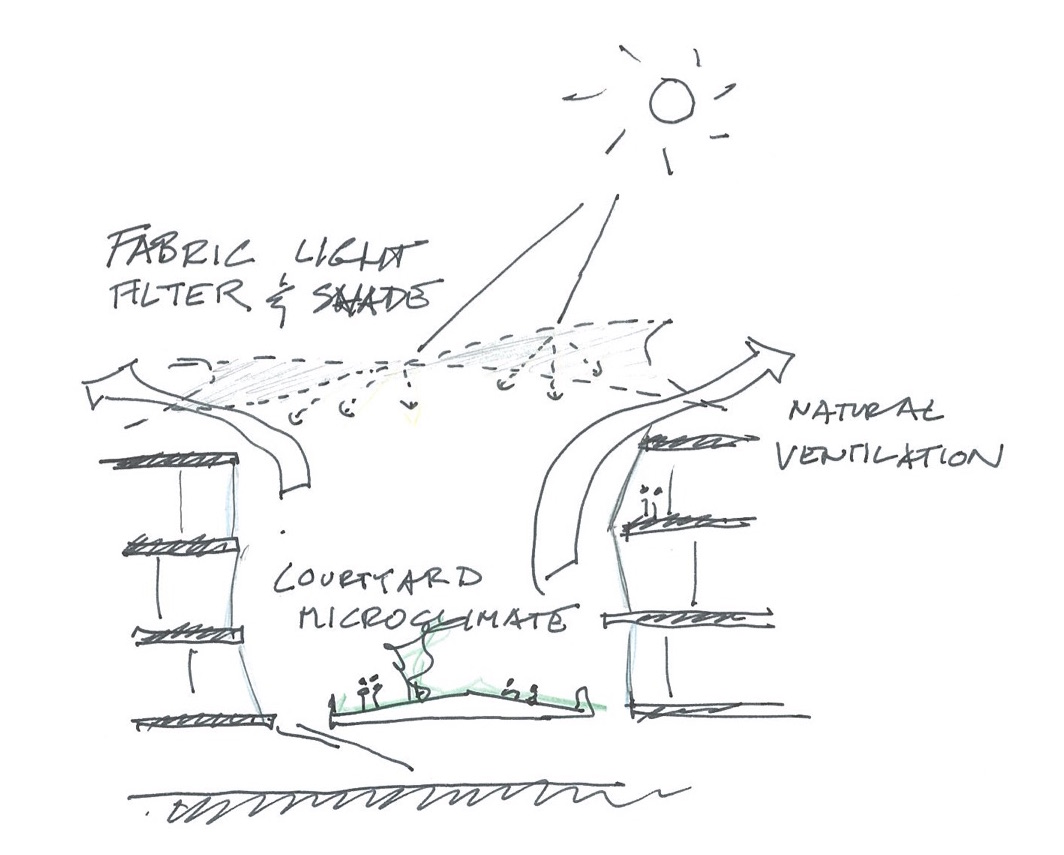 FABRIC LIGHT
FILTER & SHADE
NATURAL
VENTILATION
COURTYARD
MICROCLIMATE